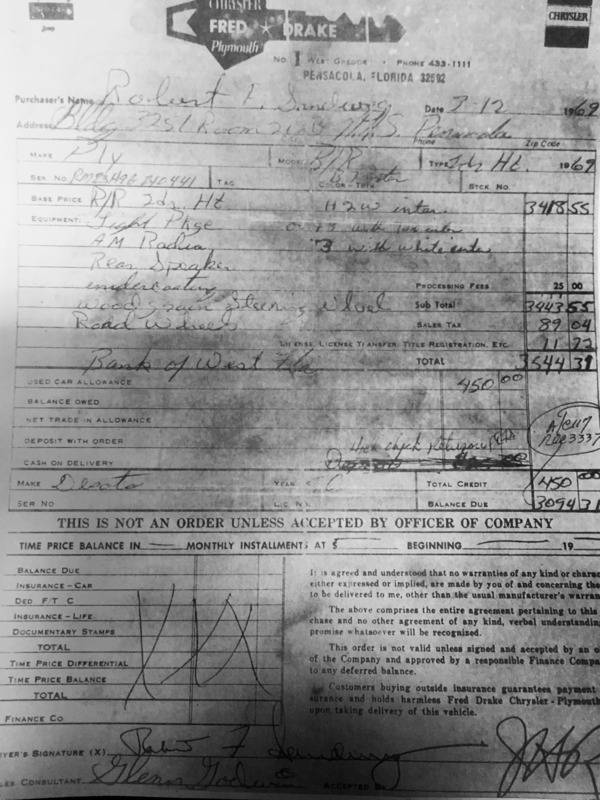 CHRYSLER
FRED ★ DRAKE
Plymouth
CHRYSLER
No. 1 WEST GREGORY • PHONE 433-1111
PENSACOLA, FLORIDA 32502
Purchaser's Name Robert F. Date 3-12 1969
Address Bldg Room Pensacola
Phone Zip Code
MAKE Ply MODEL R/R TYPE 2dr Ht. 1969
SER NO. TAG COLOR-TRIM STCK NO.
BASE PRICE R/R 2dr Ht H2W inter. 3418 55
EQUIPMENT: Light Pkge with inter
AM Radio with white inter
Rear Speaker
undercoating PROCESSING FEES 25 00
woodgrain Steering Wheel SUB TOTAL 3443 55
Road Wheels SALES TAX 89 04
LICENSE, LICENSE TRANSFER, TITLE REGISTRATION, ETC. 11 72
Bank of West Fla TOTAL 3544 31
USED CAR ALLOWANCE 450 00
BALANCE OWED
NET TRADE IN ALLOWANCE
DEPOSIT WITH ORDER check Returned
CASH ON DELIVERY
MAKE Desoto YEAR TOTAL CREDIT 450 00
SER NO LIC NO. BALANCE DUE 3094 31
THIS IS NOT AN ORDER UNLESS ACCEPTED BY OFFICER OF COMPANY
TIME PRICE BALANCE IN MONTHLY INSTALLMENTS AT $ BEGINNING 19
BALANCE DUE
INSURANCE - CAR
DED F/T C
INSURANCE - LIFE
DOCUMENTARY STAMPS
TOTAL
TIME PRICE DIFFERENTIAL
TIME PRICE BALANCE
TOTAL
FINANCE CO
It is agreed and understood that no warranties of any kind or charac
either expressed or implied, are made by you of and concerning the
to be delivered to me, other than the usual manufacturer's warran
The above comprises the entire agreement pertaining to this
chase and no other agreement of any kind, verbal understanding
promise whatsoever will be recognized.
This order is not valid unless signed and accepted by an o
of the Company and approved by a responsible Finance Compa
to any deferred balance.
Customers buying outside insurance guarantees payment
surance and holds harmless Fred Drake Chrysler-Plymouth
upon taking delivery of this vehicle.
YER'S SIGNATURE (X) Robert F
LES CONSULTANT Glenn Godwin ACCEPTED BY